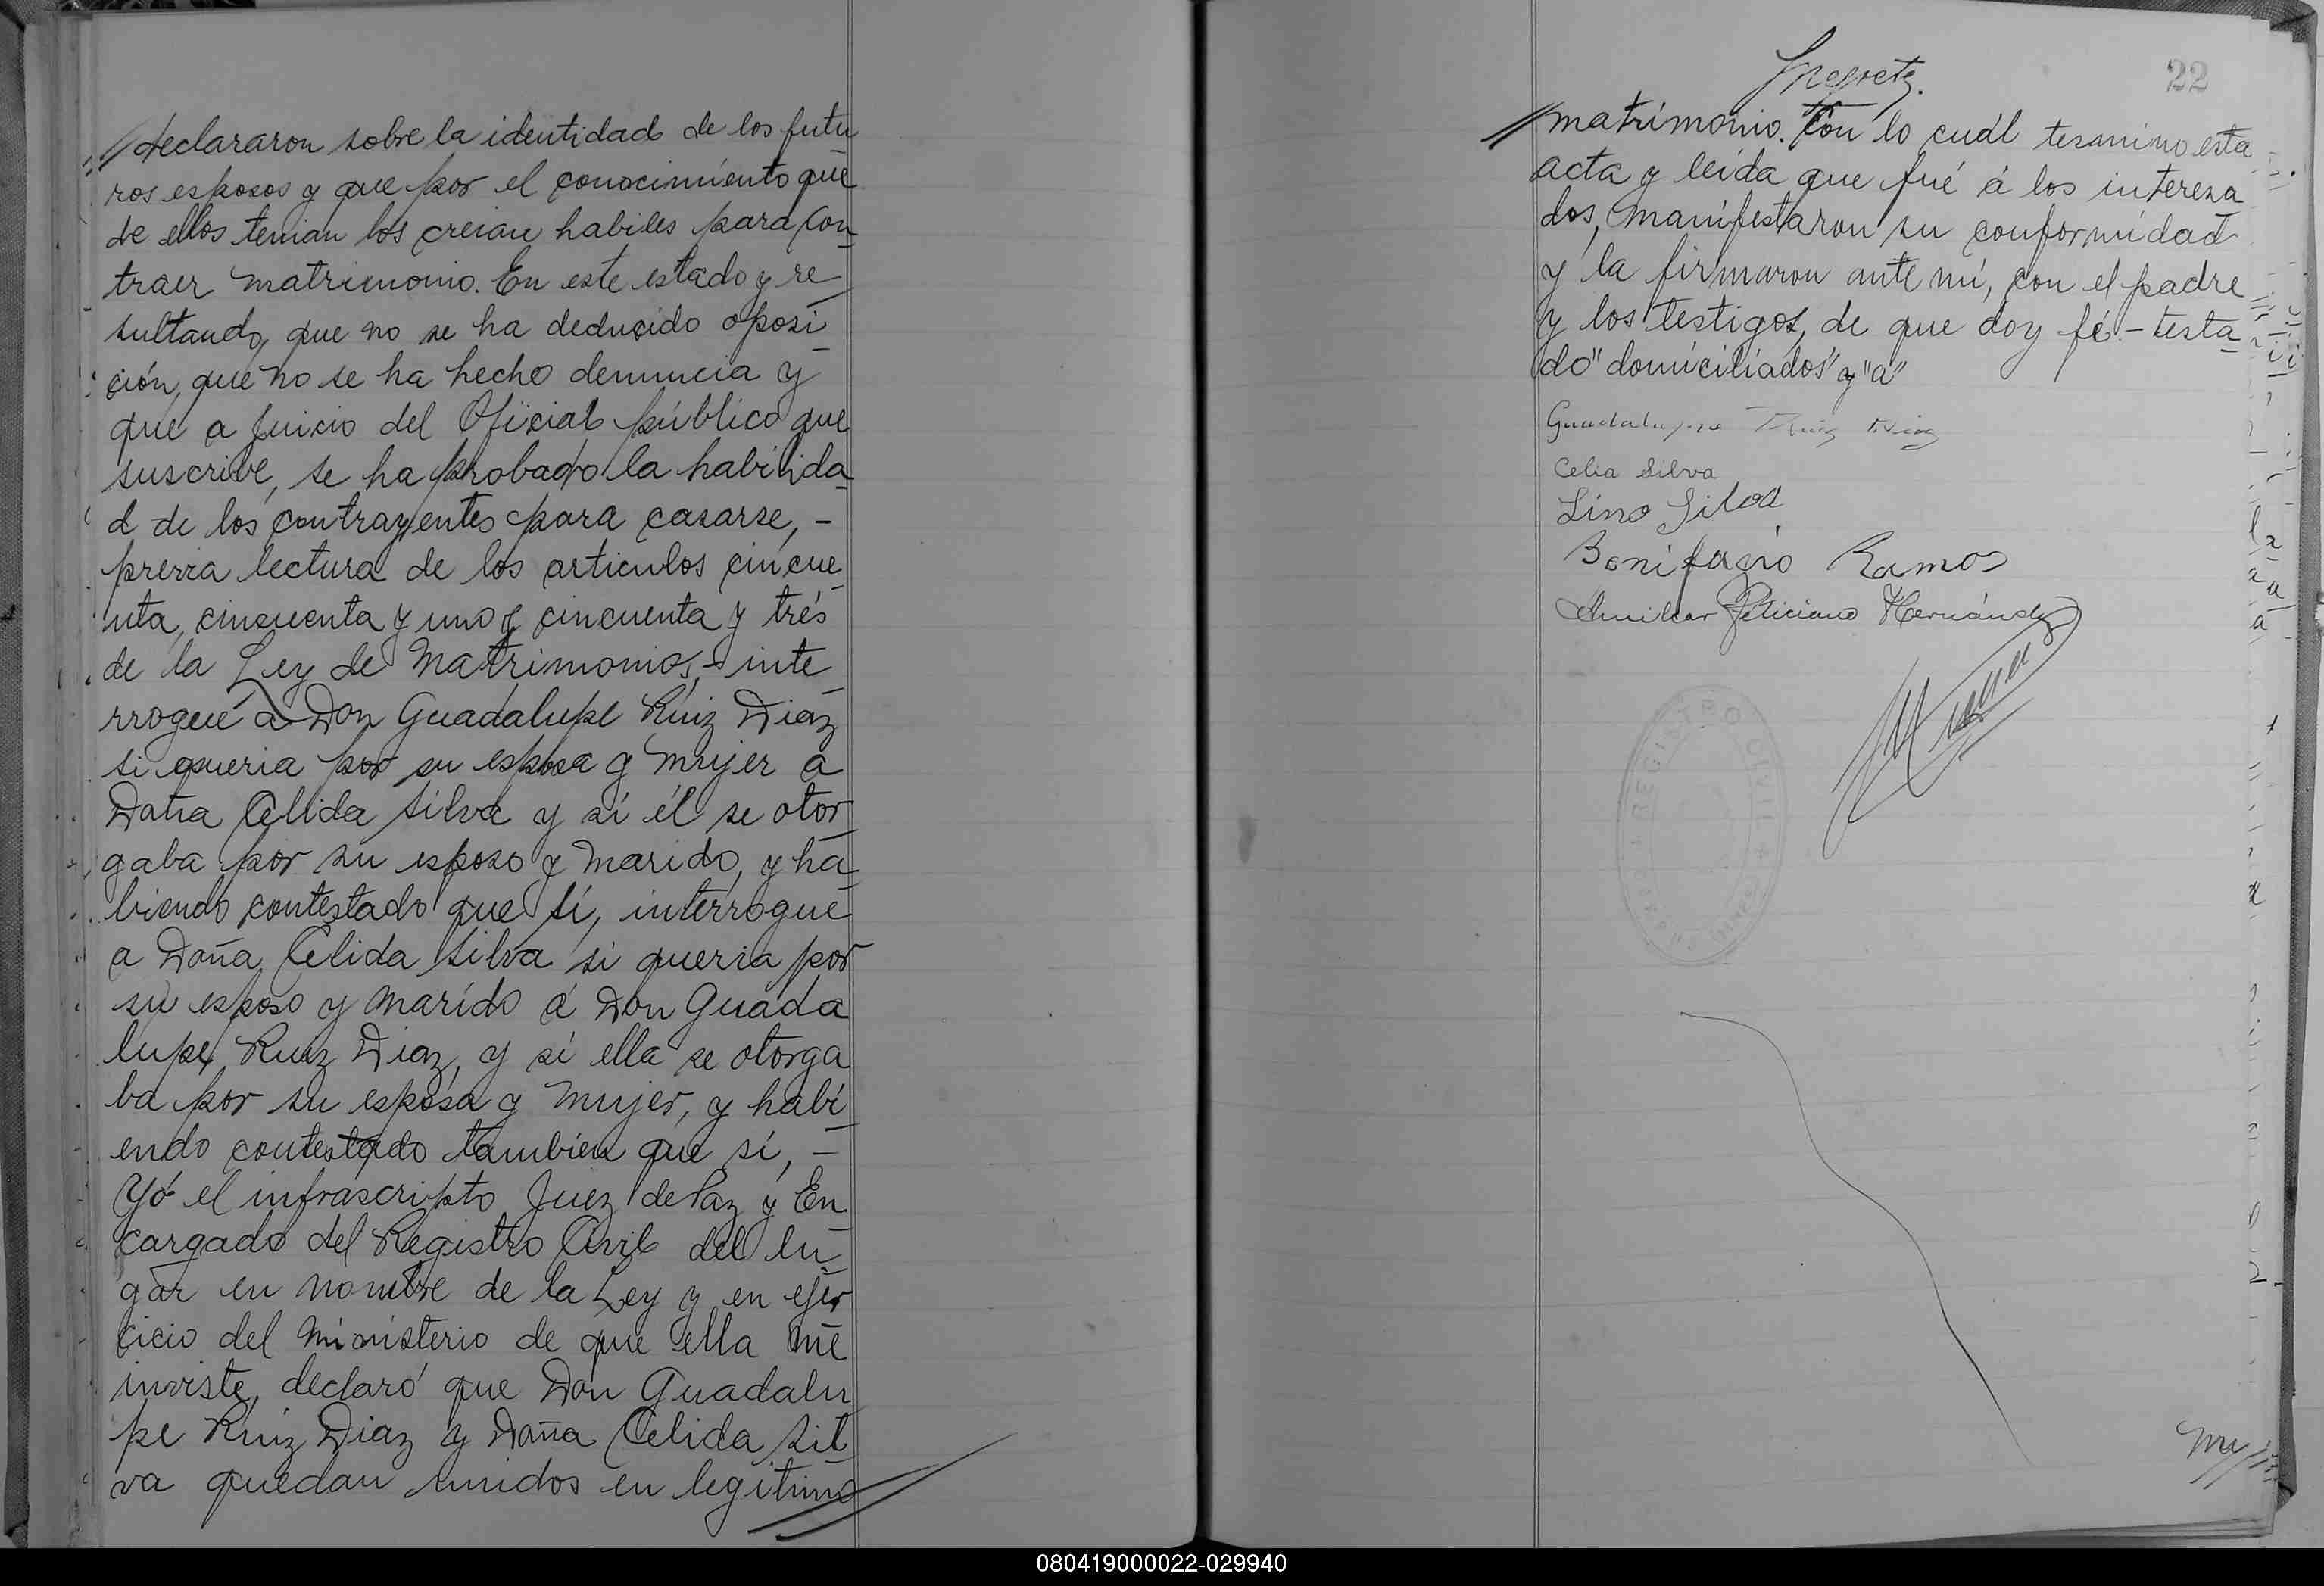 declararon sobre la identidad de los futu
ros esposos y que por el conocimiento que
de ellos tenian los creian habiles para con-
traer matrimonio. En este estado y re-
sultando, que no se ha deducido oposi-
ción, que no se ha hecho denuncia y
que a juicio del Oficial público que
suscribe, se ha probado la habilida-
d de los contrayentes para casarse, -
previa lectura de los articulos cincue-
nta, cincuenta y uno y cincuenta y trés
de la Ley de Matrimonio, - inte-
rrogué a Don Guadalupe Ruiz Diaz
si queria por su esposa y mujer a
Doña Celida Silva y si él se otor-
gaba por su esposo y marido, y ha-
biendo contestado que sí, interrogué
a Doña Celida Silva si queria por
su esposo y marido á Don Guada
lupe Ruiz Diaz, y si ella se otorga
ba por su esposa y mujer, y habi-
endo contestado tambien que sí, -
Yó el infrascripto Juez de Paz y En-
cargado del Registro Civil del lu-
gar en nombre de la Ley y en ejer-
cicio del ministerio de que ella me
inviste, declaró que Don Guadalu
pe Ruiz Diaz y Doña Celida Sil-
va quedan unidos en legitimo
22
matrimonio. Con lo cuál termino esta
acta y leida que fué á los interesa
dos, manifestaron su conformidad
y la firmaron ante mí, con el padre
y los testigos, de que doy fé. - testa-
do "domiciliados" y "a"
Guadalupe Ruiz Diaz
Celia Silva
Lino Silva
Bonifacio Ramos
Feliciano Hernández
REGISTRO CIVIL
080419000022-029940